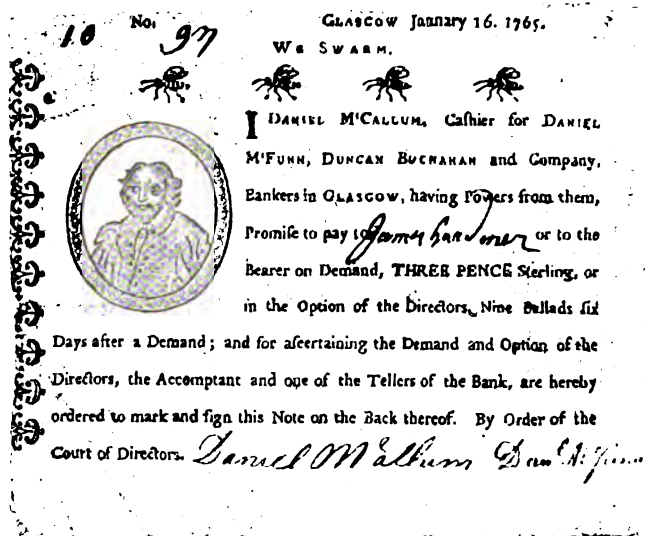 10 No. 97 GLASGOW January 16. 1765.
WE SWARM.
I DANIEL M'CALLUM, Caſhier for DANIEL
M'FUNN, DUNCAN BUCHANAN and Company,
Bankers in GLASGOW, having Powers from them,
Promiſe to pay to James Gardner or to the
Bearer on Demand, THREE PENCE Sterling, or
in the Option of the Directors, Nine Ballads ſix
Days after a Demand; and for aſcertaining the Demand and Option of the
Directors, the Accomptant and one of the Tellers of the Bank, are hereby
ordered to mark and ſign this Note on the Back thereof. By Order of the
Court of Directors. Daniel McCallum Danl